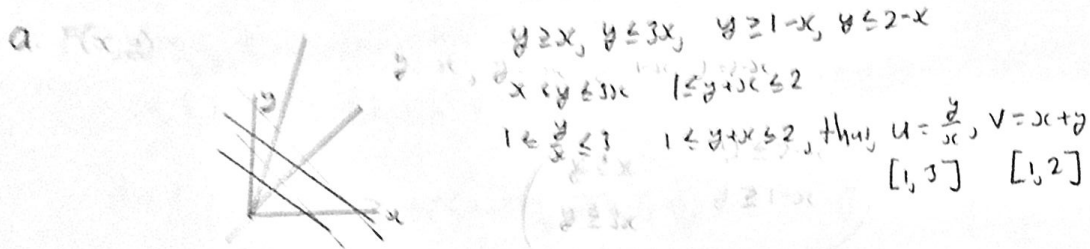 a.
y ≥ x, y ≤ 3x, y ≥ 1-x, y ≤ 2-x
x ≤ y ≤ 3x 1 ≤ y+x ≤ 2
1 ≤ y/x ≤ 3 1 ≤ y+x ≤ 2, thus, u = y/x, v = x+y
[1, 3] [1, 2]
y
x